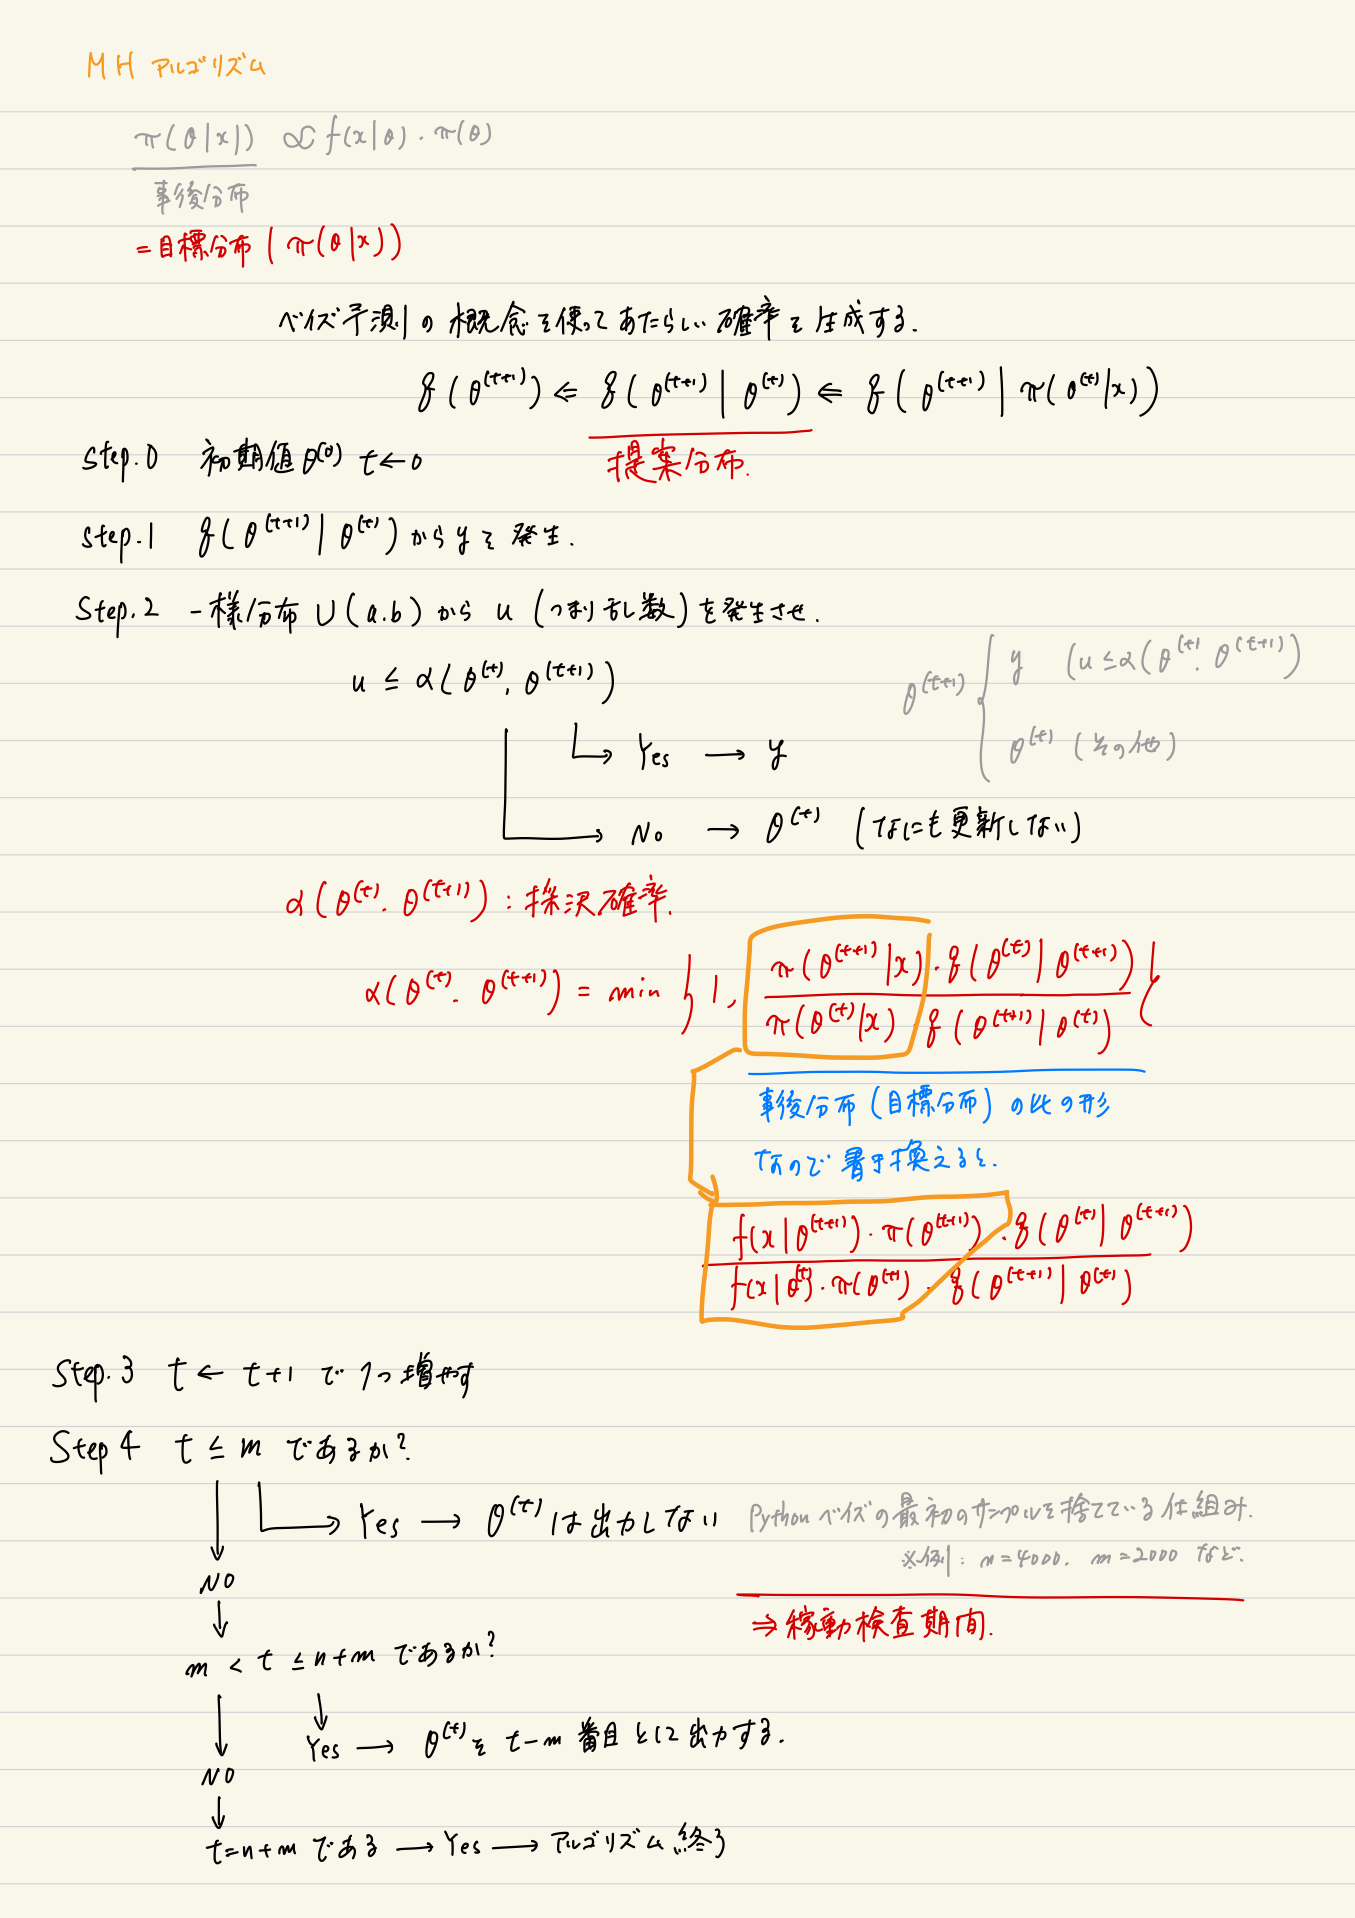 MH アルゴリズム
π(θ|x) ∝ f(x|θ)・π(θ)
事後分布
=目標分布(π(θ|x))
ベイズ予測の概念を使ってあたらしい確率を生成する.
q(θ^(t+1)) ⇐ q(θ^(t+1)|θ^(t)) ⇐ q(θ^(t+1)|π(θ^(t)|x))
提案分布.
Step.0 初期値θ^(0) t←0
Step.1 q(θ^(t+1)|θ^(t))からyを発生.
Step.2 一様分布U(a.b)からu(つまり乱数)を発生させ.
u ≤ α(θ^(t), θ^(t+1))
θ^(t+1) { y (u≤α(θ^(t), θ^(t+1))
θ^(t) (その他)
Yes → y
No → θ^(t) (なにも更新しない)
α(θ^(t). θ^(t+1)) : 採択確率.
α(θ^(t). θ^(t+1)) = min { 1, π(θ^(t+1)|x)・q(θ^(t)|θ^(t+1)) }
π(θ^(t)|x) q(θ^(t+1)|θ^(t))
事後分布(目標分布)の比の形
なので書き換えると.
f(x|θ^(t+1))・π(θ^(t+1))・q(θ^(t)|θ^(t+1))
f(x|θ^(t))・π(θ^(t))・q(θ^(t+1)|θ^(t))
Step.3 t ← t+1 で1つ増やす
Step 4 t ≤ m であるか?
Yes → θ^(t)は出力しない
Pythonベイズの最初のサンプルを捨てている仕組み.
※例: n=4000. m=2000 など.
⇒稼動検査期間.
NO
m < t ≤ n+m であるか?
Yes → θ^(t)を t-m 番目として出力する.
NO
t=n+m である → Yes → アルゴリズム終了